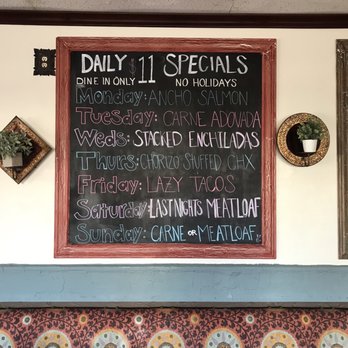 DAILY $11 SPECIALS
DINE IN ONLY NO HOLIDAYS
Monday: ANCHO SALMON
Tuesday: CARNE ADOVADA
Weds: STACKED ENCHILADAS
Thurs: CHORIZO STUFFED CHX
Friday: LAZY TACOS
Saturday: LAST NIGHTS MEATLOAF
Sunday: CARNE OR MEATLOAF